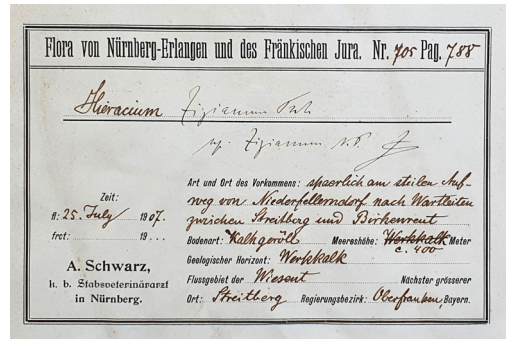 Flora von Nürnberg-Erlangen und des Fränkischen Jura. Nr. 705 Pag. 788
Hieracium Zizianum Tsch
ssp. Zizianum N.P.
Zeit:
fl: 25. July 1907.
frct: 19...
A. Schwarz,
k. b. Stabsveterinärarzt
in Nürnberg.
Art und Ort des Vorkommens: spaerlich am steilen Auf-
weg von Niederfellerndorf nach Wartleiten
zwischen Streitberg und Birkenreut
Bodenart: Kalkgeröll Meereshöhe: Werkkalk Meter
c. 400
Geologischer Horizont: Werkkalk
Flussgebiet der Wiesent Nächster grösserer
Ort: Streitberg Regierungsbezirk: Oberfranken, Bayern.